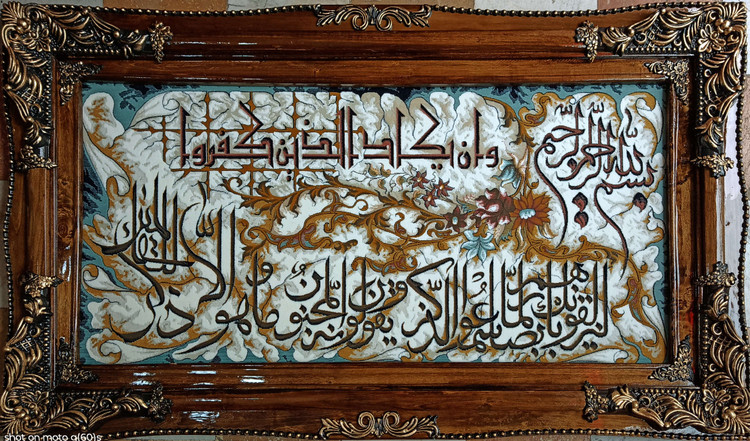 بسم الله الرحمن الرحيم
وان يكاد الذين كفروا
ليزلقونك بابصارهم لما سمعوا الذكر ويقولون انه لمجنون وما هو الا ذكر للعالمين
shot on moto g(60)s